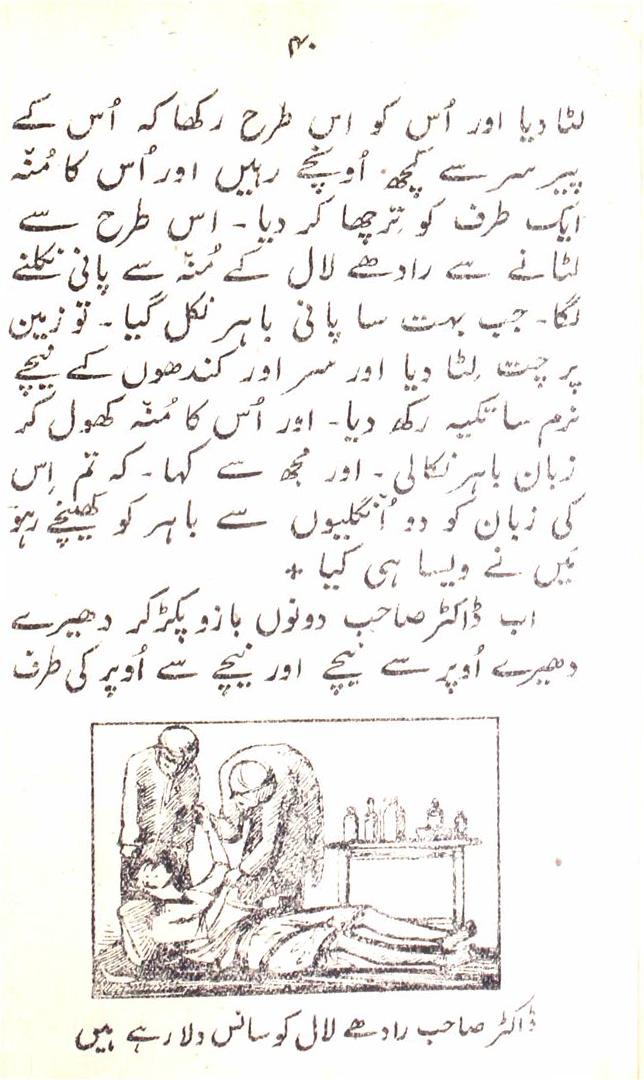 ۴۰
لٹا دیا اور اُس کو اس طرح رکھا کہ اُس کے
پیر سر سے کچھ اُونچے رہیں اور اُس کا مُنّہ
ایک طرف کو ترچھا کر دیا۔ اس طرح سے
لٹانے سے رادھے لال کے مُنّہ سے پانی نکلنے
لگا۔ جب بہت سا پانی باہر نکل گیا۔ تو زمین
پر چت لِٹا دیا اور سر اور کندھوں کے نیچے
نرم سا تکیہ رکھ دیا۔ اور اُس کا مُنّہ کھول کر
زبان باہر نکالی۔ اور مجھ سے کہا۔ کہ تم اِس
کی زبان کو دو اُنگلیوں سے باہر کو کھینچے رہو
مَیں نے ویسا ہی کیا +
اب ڈاکٹر صاحب دونوں بازو پکڑ کر دھیرے
دھیرے اُوپر سے نیچے اور نیچے سے اُوپر کی طرف
ڈاکٹر صاحب رادھے لال کو سانس دلا رہے ہیں